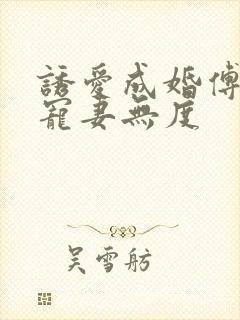 誘愛成婚傅
寵妻無度
吳雪舫